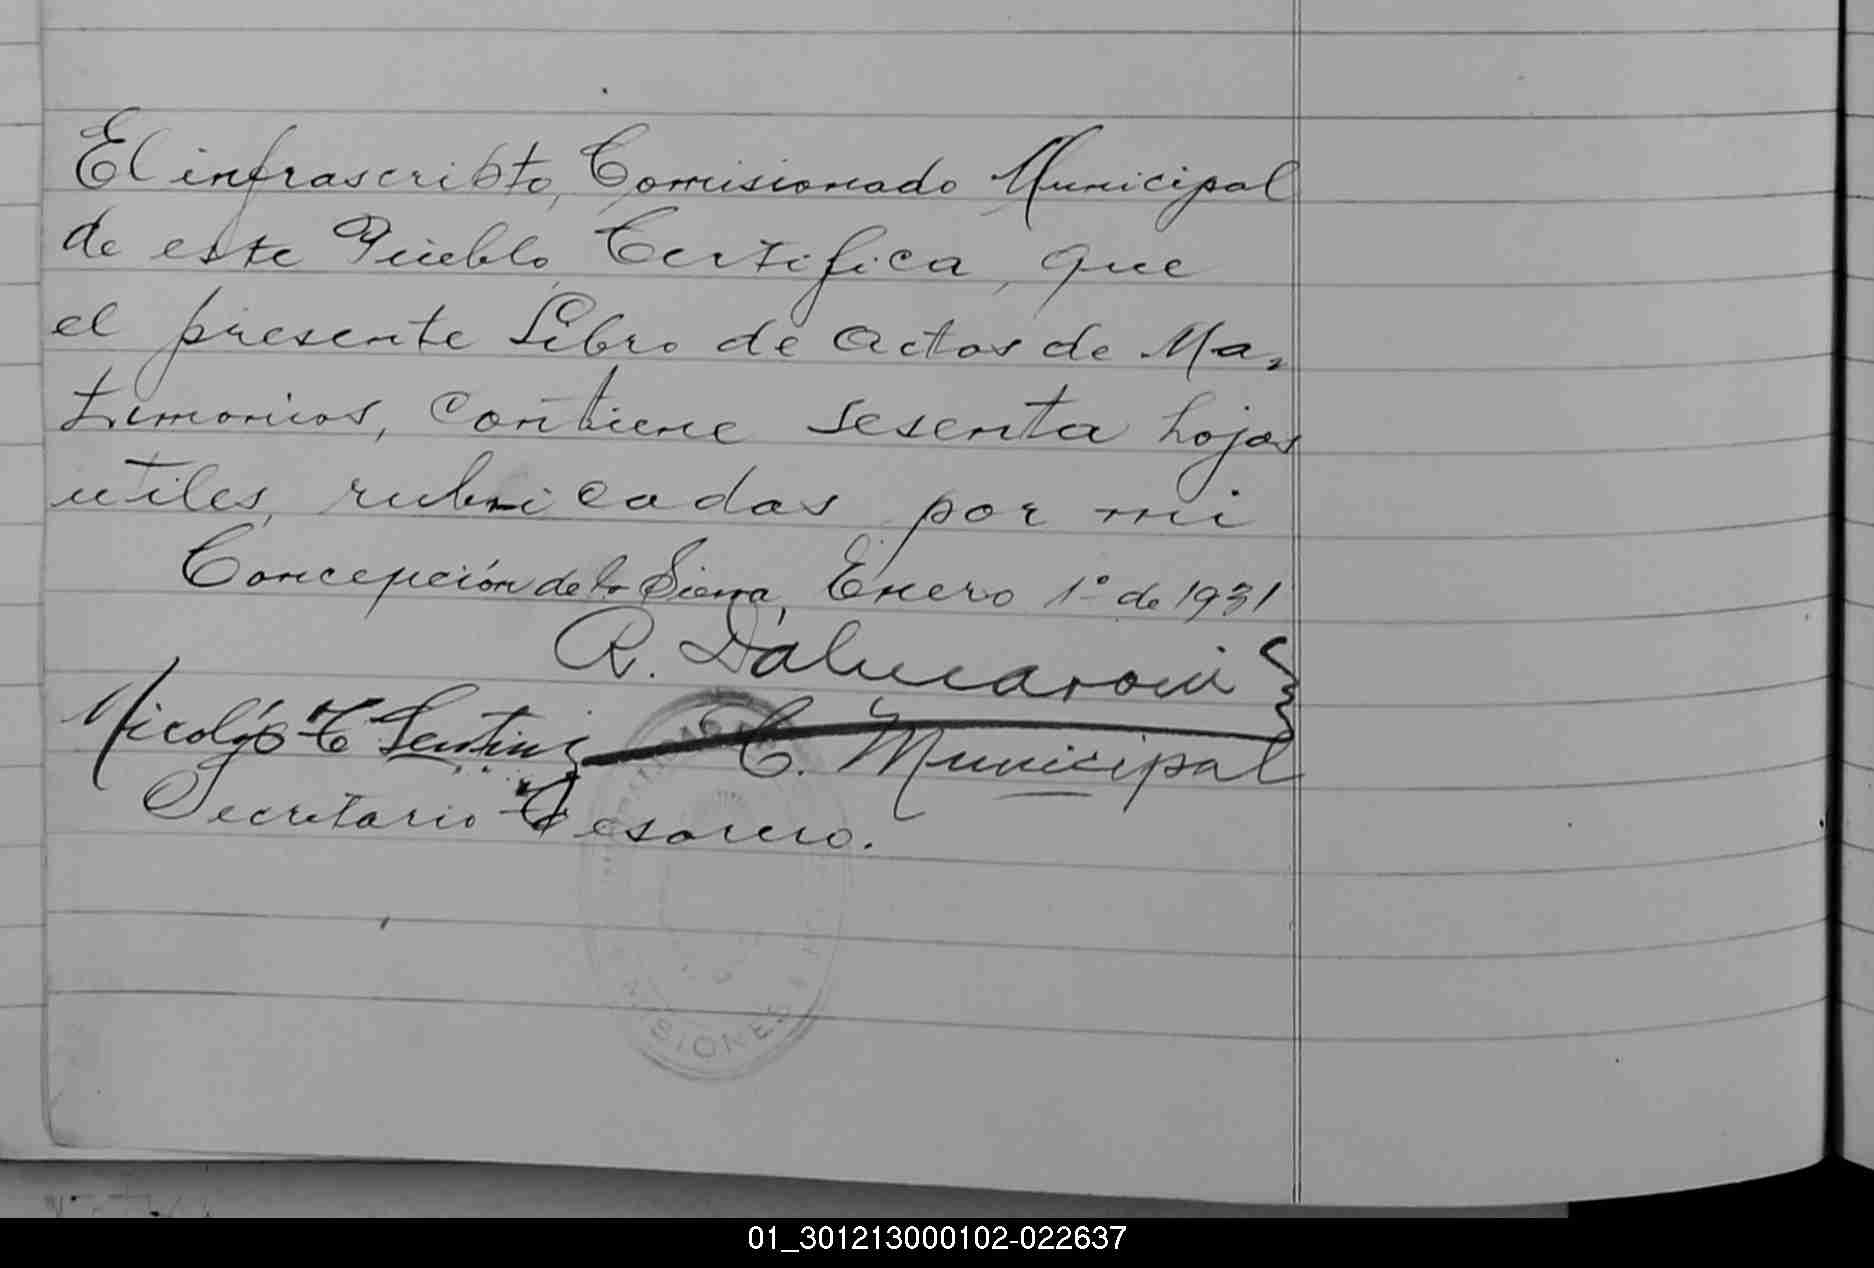 El infrascripto, Comisionado Municipal
de este Pueblo, Certifica, que
el presente Libro de actos de Ma-
trimonios, contiene sesenta hojas
utiles, rubricadas por mi
Concepción de la Sierra, Enero 1º de 1931
R.
Nicolás T.
C. Municipal
Secretario Tesorero.
MISIONES
01_301213000102-022637